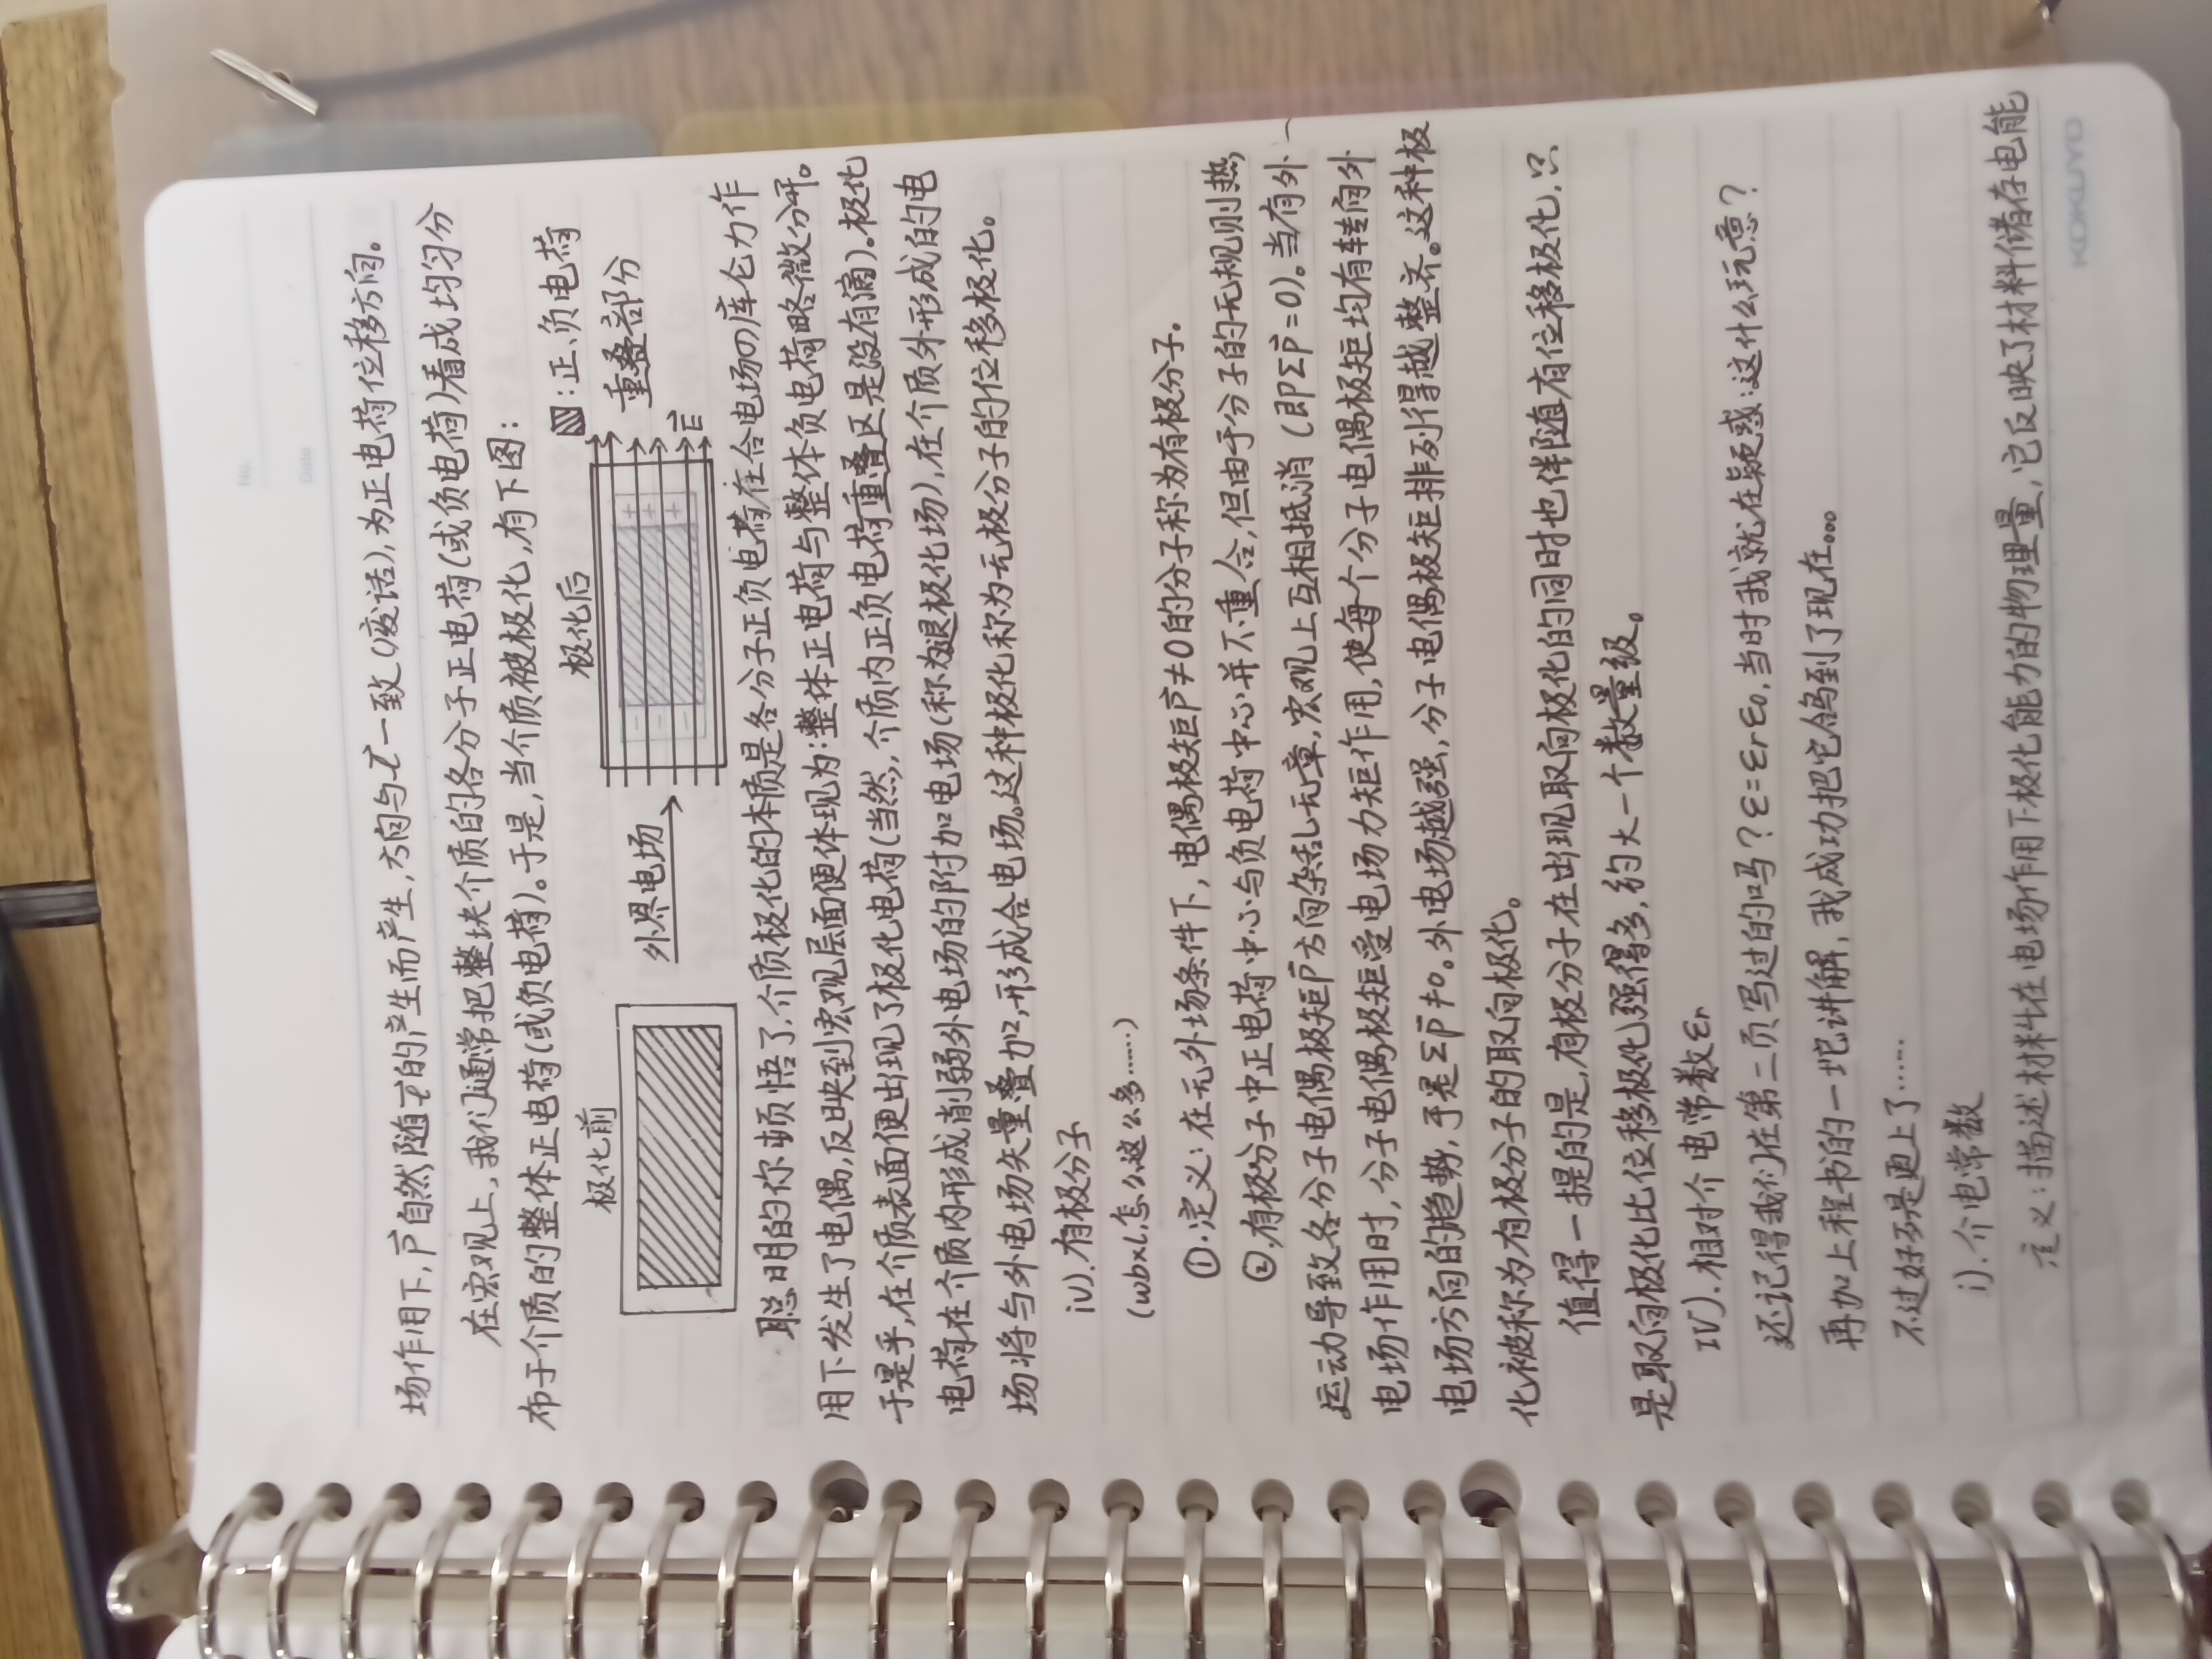 No.
Date
场作用下,p⃗自然随l⃗的产生而产生,方向与l⃗一致(废话),为正电荷位移方向。
在宏观上,我们通常把整块介质的各分子正电荷(或负电荷)看成均匀分
布于介质的整体正电荷(或负电荷)。于是,当介质被极化,有下图:
极化前
外界电场
极化后
- - -
+ + +
E⃗
:正、负电荷
重叠部分
聪明的你顿悟了,介质极化的本质是各分子正负电荷在合电场の库仑力作
用下发生了电偶,反映到宏观层面便体现为:整体正电荷与整体负电荷略微分开。
于是乎,在介质表面便出现了极化电荷(当然,介质内正负电荷重叠区是没有滴)。极化
电荷在介质内形成削弱外电场的附加电场(称为退极化场),在介质外形成的电
场将与外电场矢量叠加,形成合电场。这种极化称为无极分子的位移极化。
iv).有极分子
(wbxl,怎么这么多……)
①.定义:在无外场条件下,电偶极矩p⃗≠0的分子称为有极分子.
②.有极分子中正电荷中心与负电荷中心并不重合,但由于分子的无规则热
运动导致各分子电偶极矩p⃗方向杂乱无章,宏观上互相抵消(即Σp⃗=0)。当有外
电场作用时,分子电偶极矩受电场力矩作用,使每个分子电偶极矩均有转向外
电场方向的趋势,于是Σp⃗≠0。外电场越强,分子电偶极矩排列得越整齐。这种极
化被称为有极分子的取向极化。
值得一提的是,有极分子在出现取向极化的同时也伴随有位移极化,只
是取向极化比位移极化强得多,约大一个数量级。
IV).相对介电常数εr
还记得我们在第二页写过的吗?ε=εrε0,当时我就在疑惑:这什么玩意?
再加上程书的一坨讲解,我成功把它鸽到了现在。。。
不过好歹是更上了……
i).介电常数
定义:描述材料在电场作用下极化能力的物理量,它反映了材料储存电能
KOKUYO